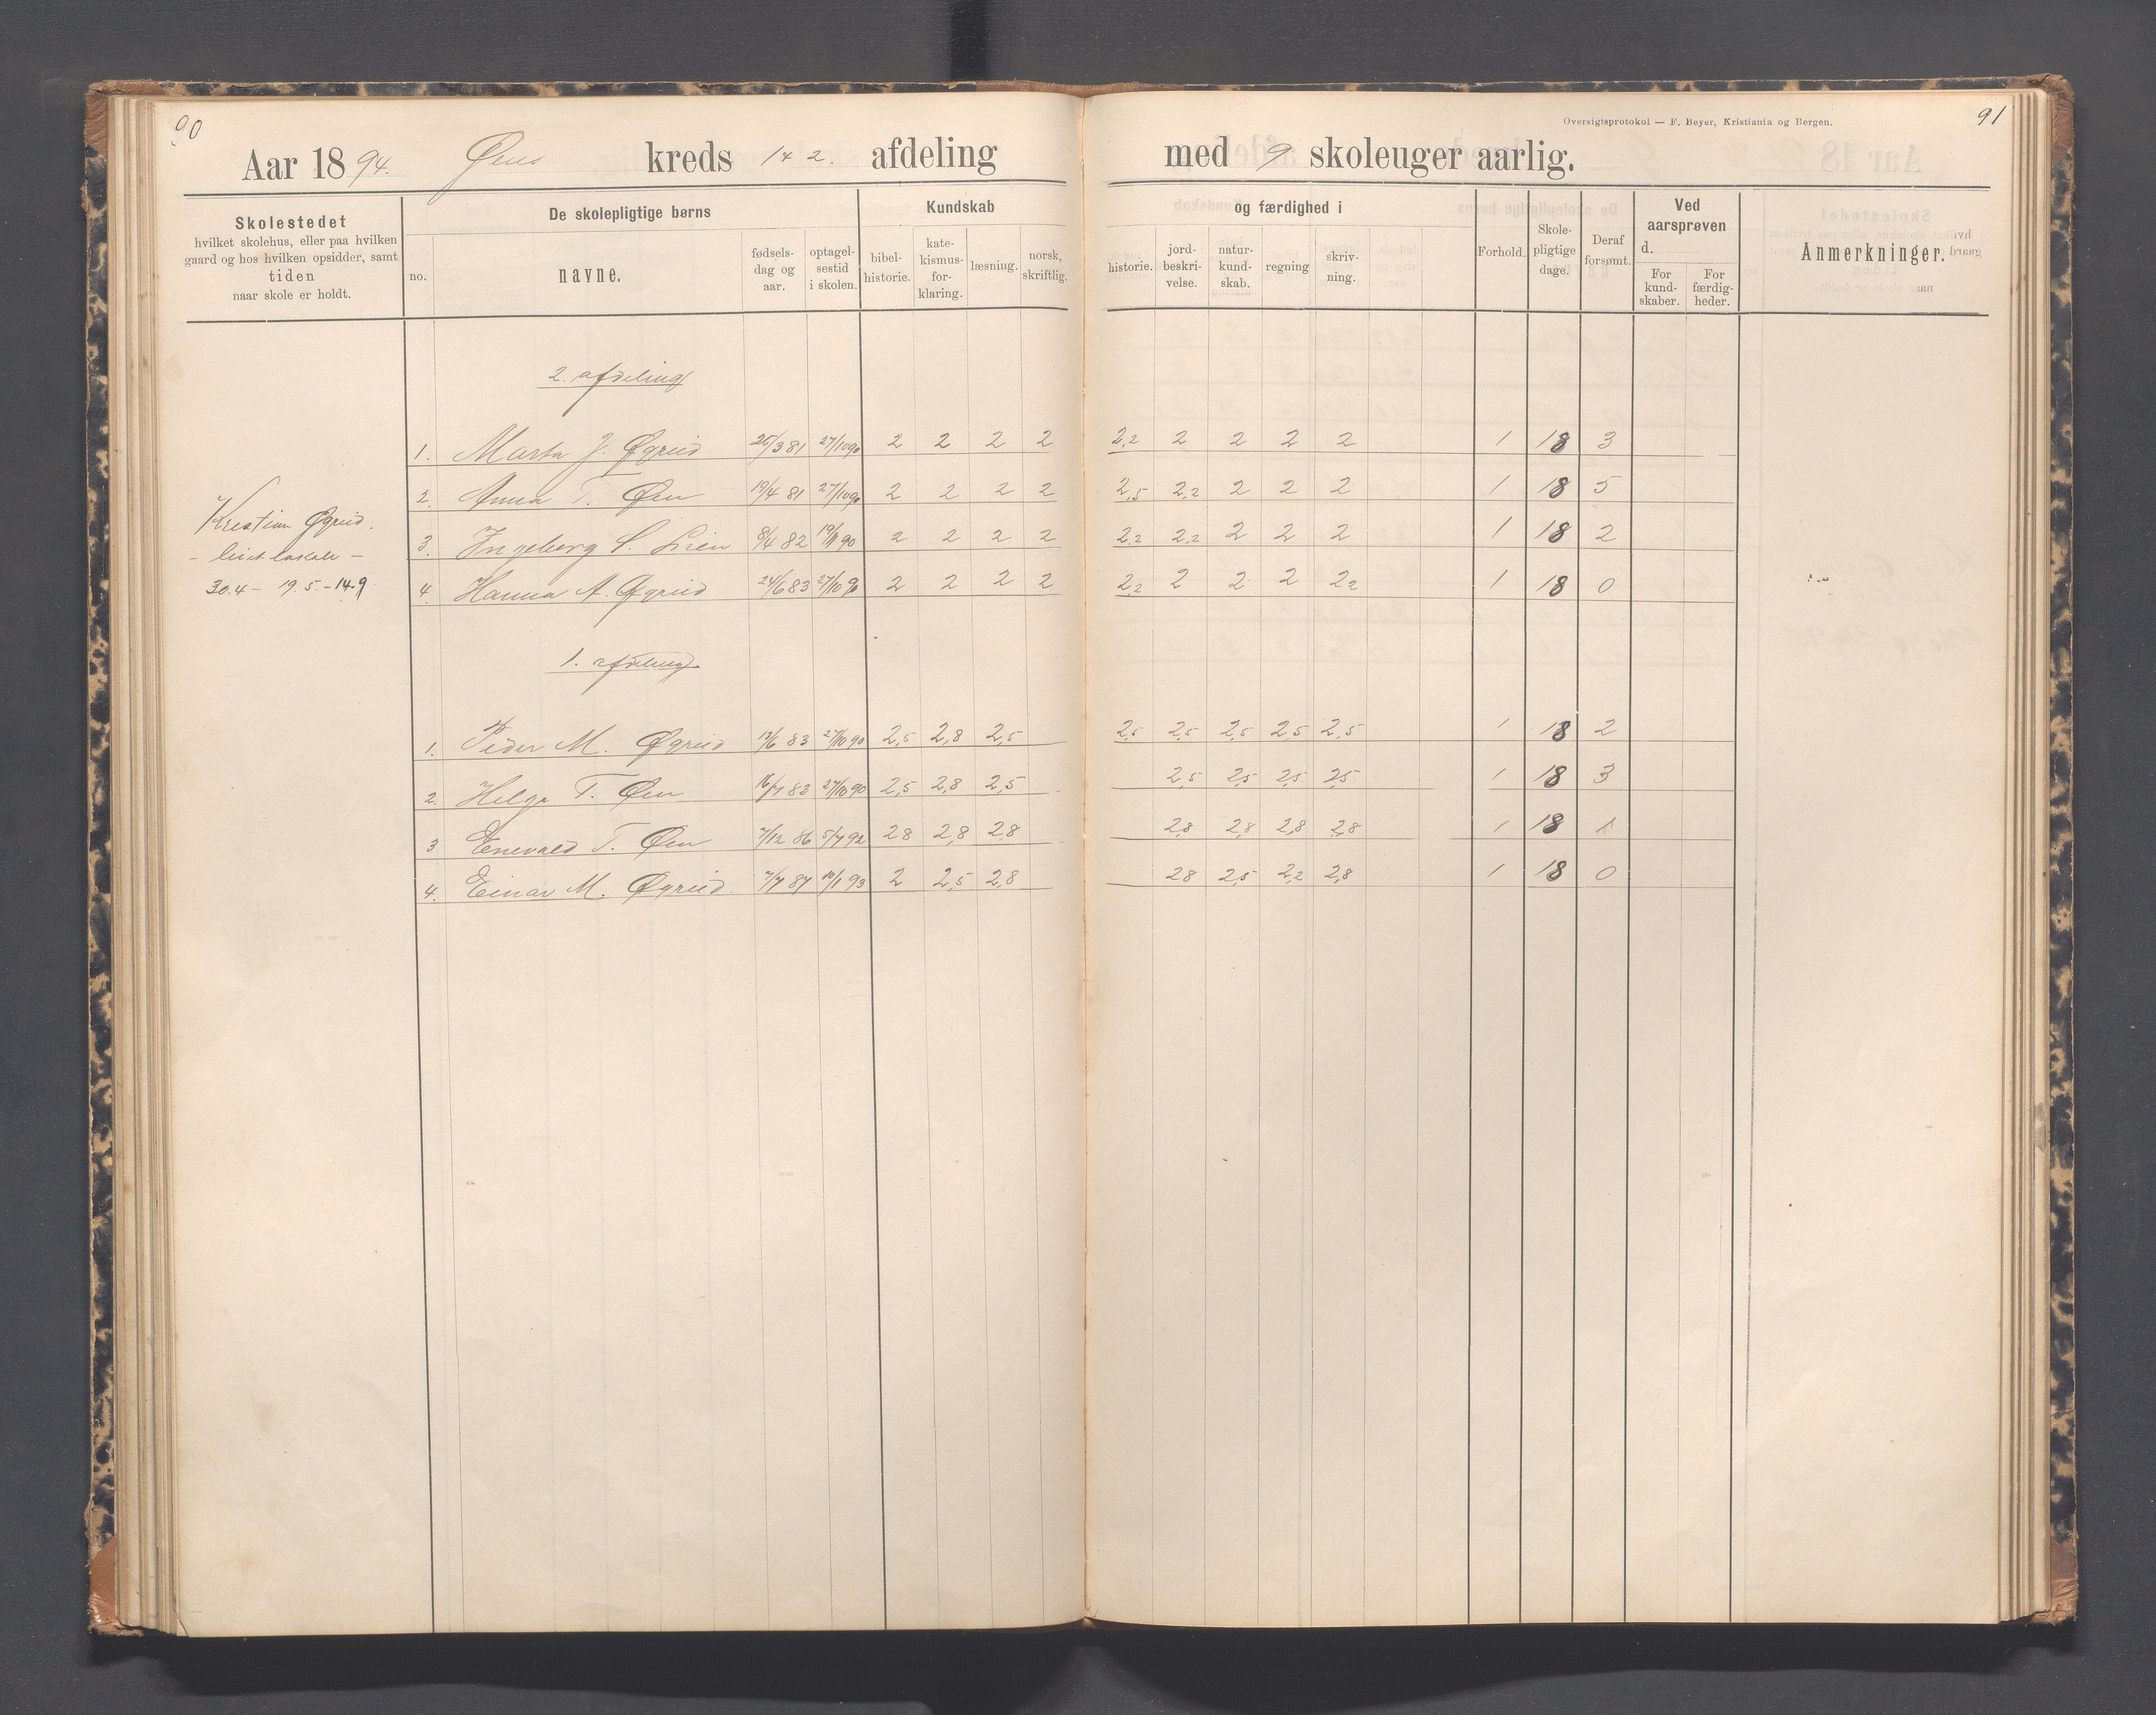 90
Aar 1894. Øens kreds 1 & 2. afdeling
Skolestedet
hvilket skolehus, eller paa hvilken
gaard og hos hvilken opsidder, samt
tiden
naar skole er holdt.
De skolepligtige børns
no. navne. fødsels-dag og aar. optagel-sestid i skolen.
Kundskab
bibel-historie. kate-kismus-for-klaring. læsning. norsk, skriftlig.
Oversigtsprotokol — F. Beyer, Kristiania og Bergen.
91
med 9 skoleuger aarlig.
og færdighed i
historie. jord-beskri-velse. natur-kund-skab. regning skriv-ning.
Forhold. Skole-pligtige dage. Deraf forsømt.
Ved aarsprøven d.
For kund-skaber. For færdig-heder.
Anmerkninger.
Kristian Øgreid.
30.4 – 19.5. – 14.9
2. afdeling
1. Marta J. Øgreid 3 81 27/10 90 2 2 2 2 2,2 2 2 2 2 1 18 3
2. Anna T. Øen 19/4 81 27/10 90 2 2 2 2 2,5 2,2 2 2 2 1 18 5
3. Ingeborg S. Lien 8/4 82 90 2 2 2 2 2,2 2,2 2 2 2 1 18 2
4. Hanna A. Øgreid 24/6 83 27/10 90 2 2 2 2 2,2 2 2 2 2,2 1 18 0
1. afdeling
1. Peder M. Øgreid 83 27/10 90 2,5 2,8 2,5 2,5 2,5 2,5 2,5 2,5 1 18 2
2. Helge T. Øen 83 27/10 90 2,5 2,8 2,5 2,5 2,5 2,5 2,5 1 18 3
3 Enevald T. Øen 7/12 86 5/7 92 2,8 2,8 2,8 2,8 2,8 2,8 2,8 1 18
4. Einar M. Øgreid. 7/7 87 10/1 93 2 2,5 2,8 2,8 2,5 2,2 2,8 1 18 0